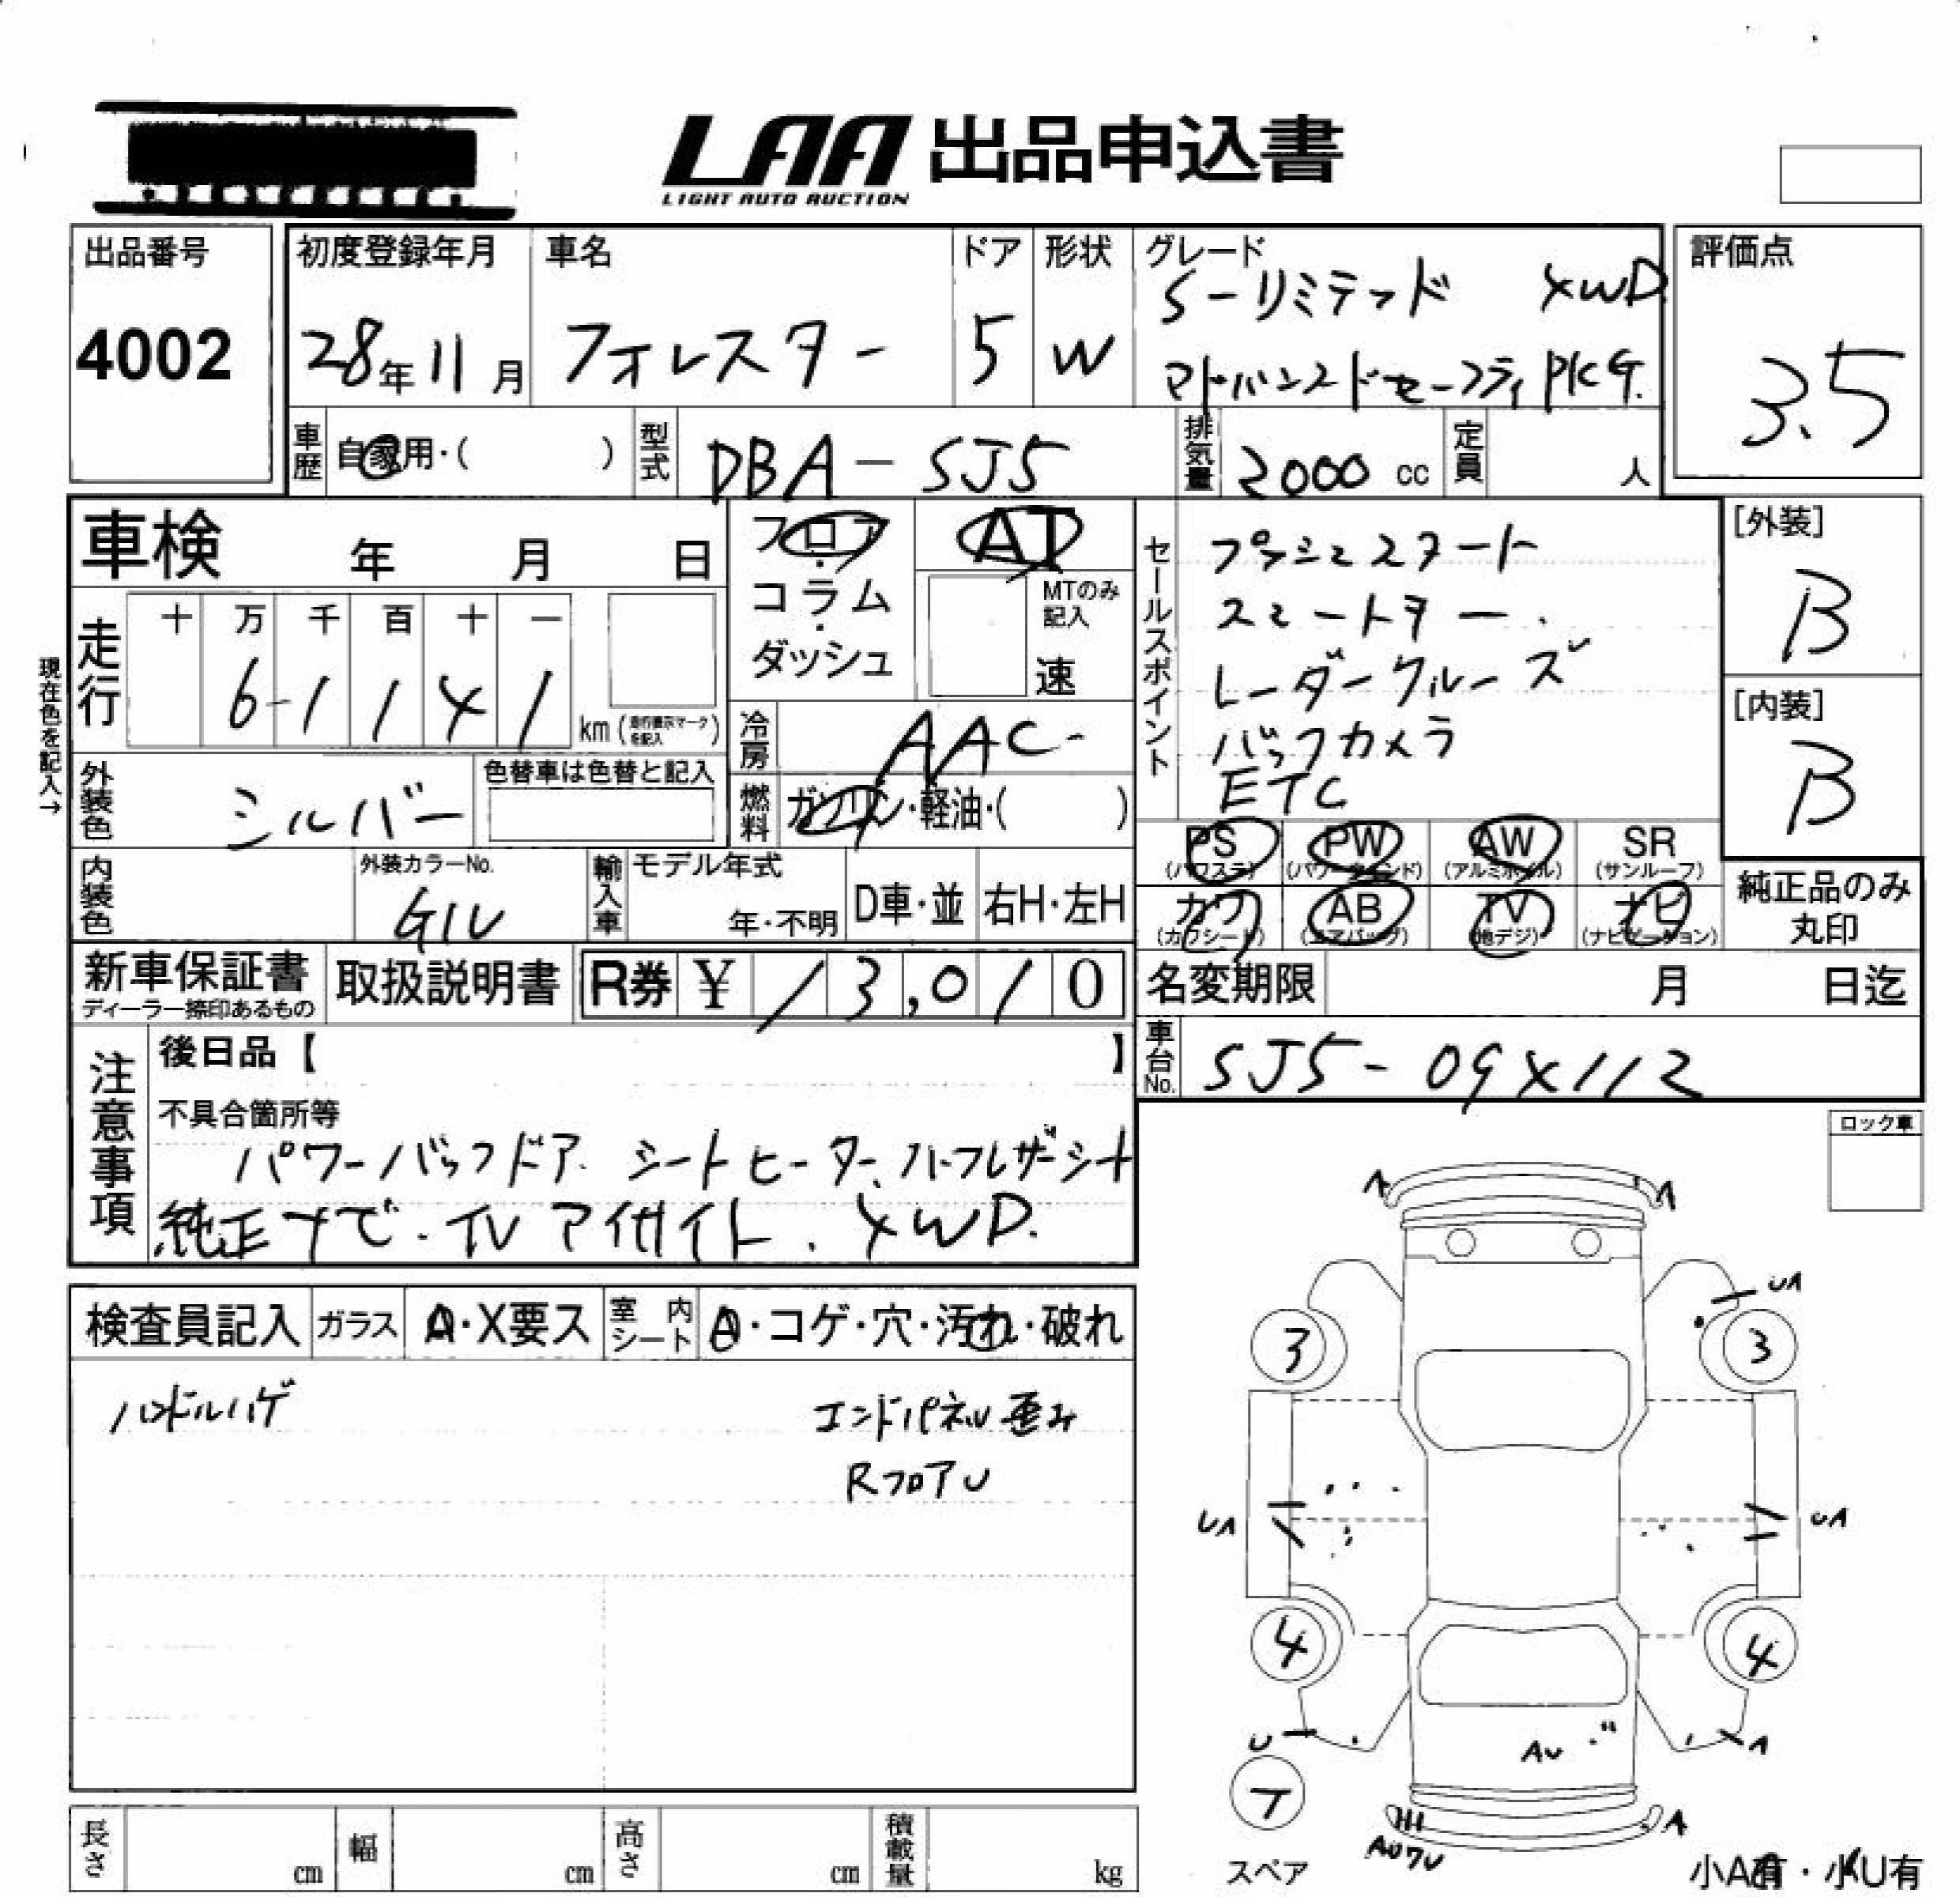 LAA 出品申込書
LIGHT AUTO AUCTION
出品番号
4002
初度登録年月
28年11月
車名
フォレスター
ドア
5
形状
W
グレード
S-リミテッド XWD
アドバンスドセーフティPKG.
評価点
3.5
車歴
自家用・( )
型式
DBA-SJ5
排気量
2000 cc
定員
人
車検 年 月 日
フロア・コラム・ダッシュ
AT
MTのみ記入
速
セールスポイント
プッシュスタート
スマートキー.
レーダークルーズ
バックカメラ
ETC
[外装]
B
[内装]
B
現在色を記入→
走行
十 万 千 百 十 一
6 1 1 4 1
km(走行表示マークを記入)
冷房
AAC
外装色
シルバー
色替車は色替と記入
燃料
ガソリン・軽油・( )
内装色
外装カラーNo.
G1U
輸入車
モデル年式
年・不明
D車・並
右H・左H
PS
(パワステ)
PW
(パワーウインド)
AW
(アルミホイル)
SR
(サンルーフ)
カワ
(カワシート)
AB
(エアバッグ)
TV
(地デジ)
ナビ
(ナビゲーション)
純正品のみ
丸印
新車保証書
ディーラー捺印あるもの
取扱説明書
R券 ¥ 13,010
名変期限 月 日迄
車台No.
SJ5-09X112
注意事項
後日品【 】
不具合箇所等
パワーバックドア. シートヒーター、ハーフレザーシート
純正ナビ・TV アイサイト. XWD.
ロック車
検査員記入
ガラス
A・X要ス
室内シート
A・コゲ・穴・汚れ・破れ
ハンドルハゲ
エンドパネル歪み
RフロアU
A
A
UA
3
3
UA
UA
4
4
U
A
AU
T
A
スペア
小A有・小U有
長さ
cm
幅
cm
高さ
cm
積載量
kg